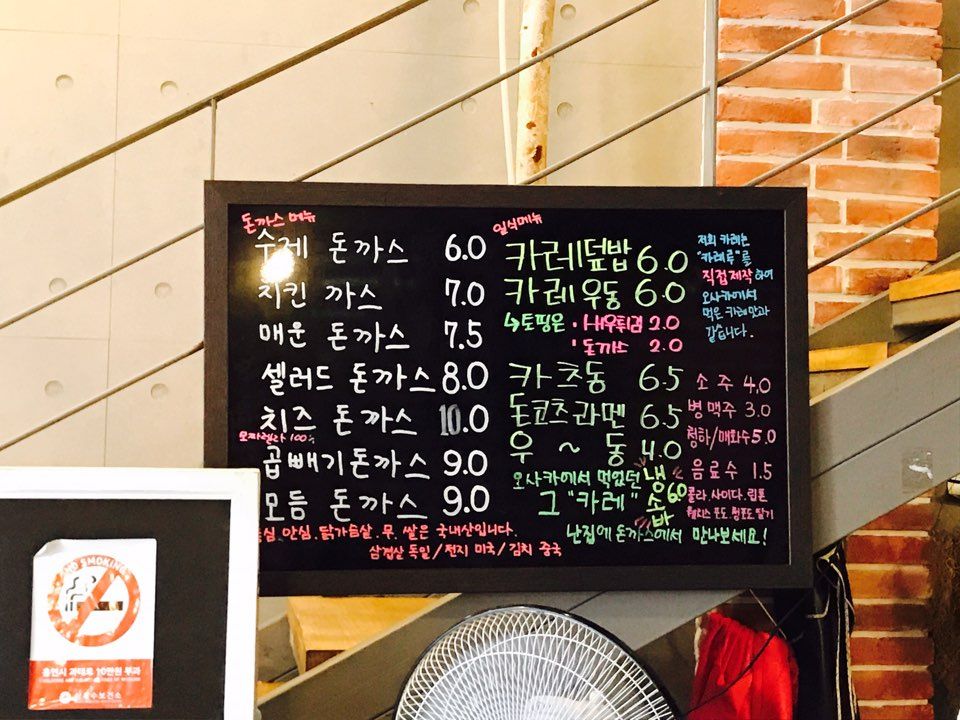 돈까스 메뉴
수제 돈까스 6.0
치킨 까스 7.0
매운 돈까스 7.5
셀러드 돈까스 8.0
치즈 돈까스 10.0
모짜렐라 100%
곱빼기돈까스 9.0
모듬 돈까스 9.0
등심, 안심, 닭가슴살, 무, 쌀은 국내산입니다.
삼겹살 독일/전지 미국/김치 중국
일식메뉴
카레덮밥 6.0
카레우동 6.0
↳토핑은 · 새우튀김 2.0
· 돈까스 2.0
카츠동 6.5
돈코츠라멘 6.5
우~동 4.0
냉소바 6.0
오사카에서 먹었던
그 "카레"
난집에 돈까스에서 만나보세요!
저희 카레는
"카레루"를
직접제작하여
오사카에서
먹은 카레맛과
같습니다.
소주 4,0
병맥주 3.0
청하/매화수 5.0
음료수 1.5
콜라.사이다.립톤
웰치스 포도.청포도.딸기
NO SMOKING
흡연시 과태료 10만원 부과